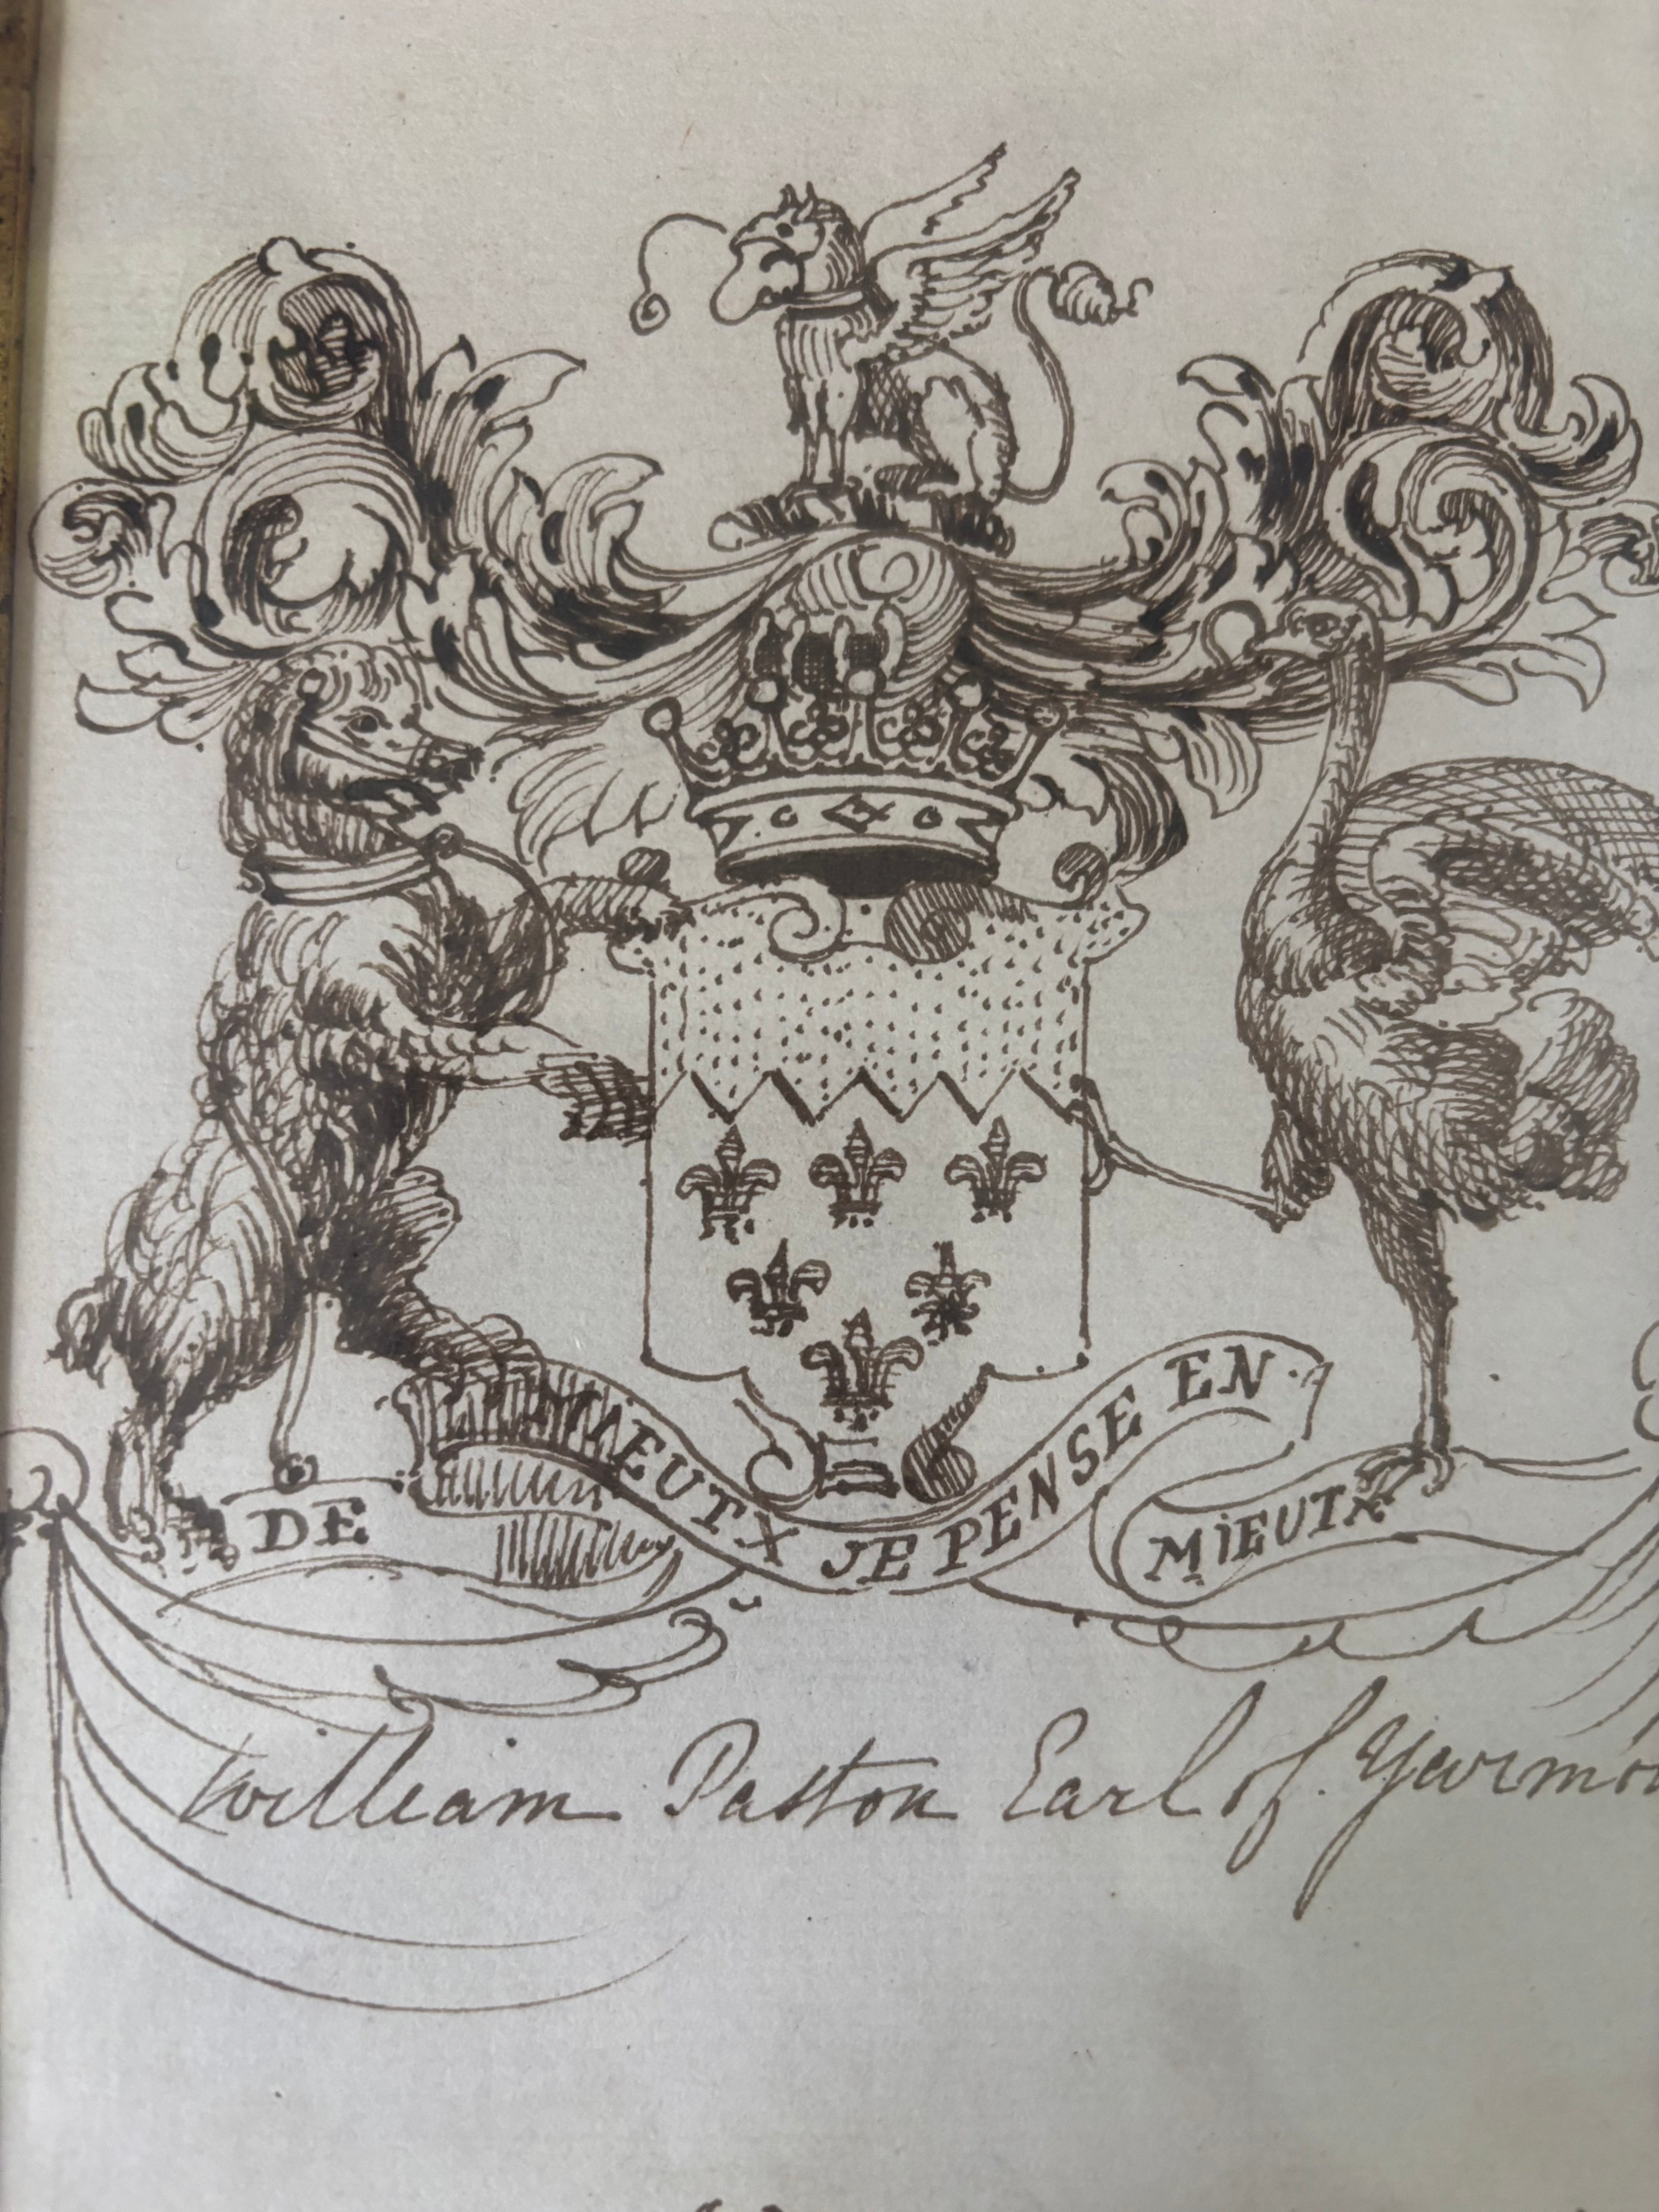 DE MIEUTX JE PENSE EN MIEUTX
William Paston Earl of Yarmo